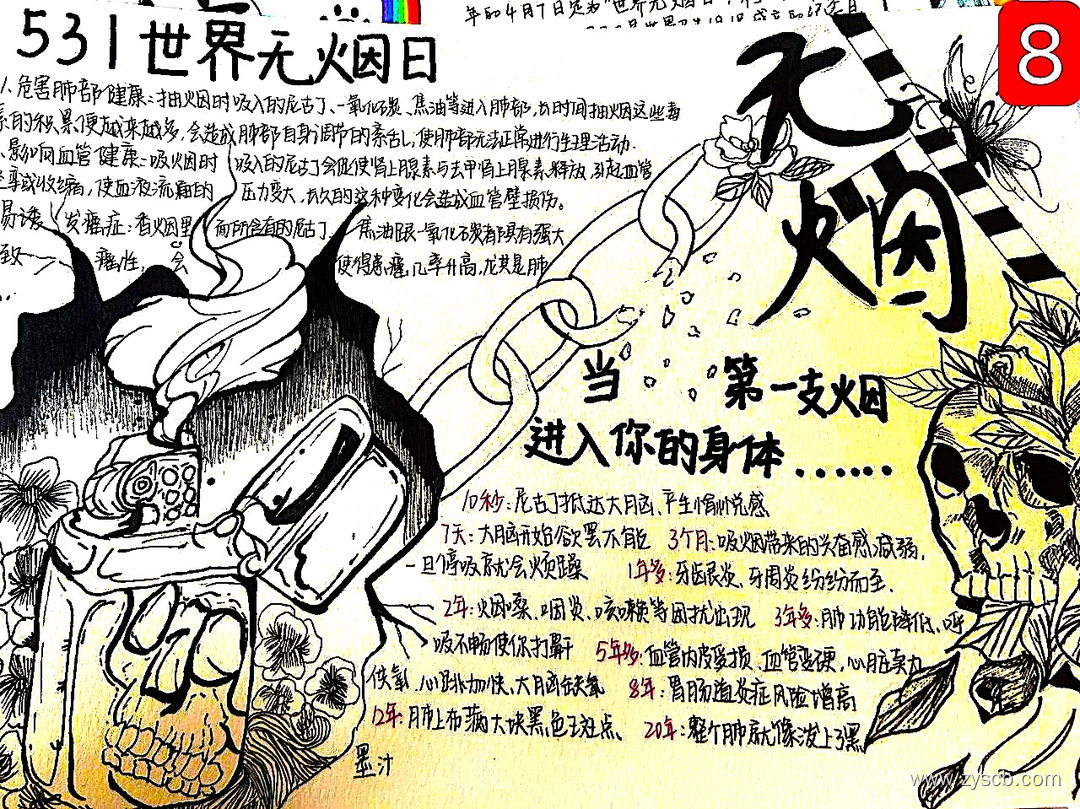 年的4月7日定为"世界无烟日",
8
531世界无烟日
1、危害肺部健康:抽烟时吸入的尼古丁、一氧化碳、焦油等进入肺部,长时间抽烟这些毒
素的积累便越来越多,会造成肺部自身调节的紊乱,使肺部无法正常进行生理活动.
、影响血管健康:吸烟时 吸入的尼古丁会促使肾上腺素与去甲肾上腺素释放,引起血管
壁收缩,使血液流通的 压力变大,长久的这种变化会造成血管壁损伤。
易诱 发癌症:香烟里 面所含有的尼古丁、焦油跟一氧化碳都具有强大
致 癌性, 会 使得患癌几率升高,尤其是肺
无烟
当 第一支烟
进入你的身体......
10秒:尼古丁抵达大脑、产生愉悦感
7天:大脑开始欲罢不能 3个月:吸烟带来的兴奋感减弱,
一旦停吸就会烦躁 1年多:牙龈炎、牙周炎纷纷而至.
2年:烟嗓、咽炎、咳嗽等困扰出现 3年多:肺功能降低、呼
吸不畅使你打鼾 5年多:血管内皮受损、血管变硬,心脏泵力
供氧、心跳加快、大脑缺氧 8年:胃肠道炎症风险增高
12年:肺上布满大块黑色斑点、 20年:整个肺就像泼上了黑
墨汁
www.zyscb.com